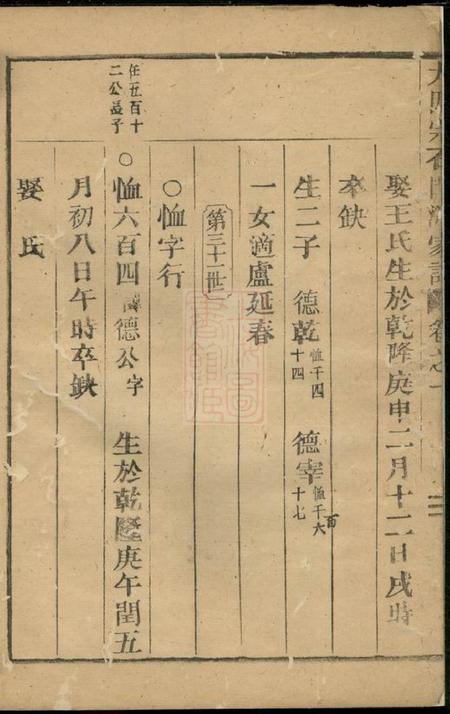 娶王氏生於乾隆庚申二月十二日戌時
卒缺
生二子 德乾恤千四十四 德宰恤千六百十七
一女適盧延春
第三十一世
○恤字行
任五百十二公長子
○恤六百四諱德公字 生於乾隆庚午閏五
月初八日午時卒缺
娶 氏